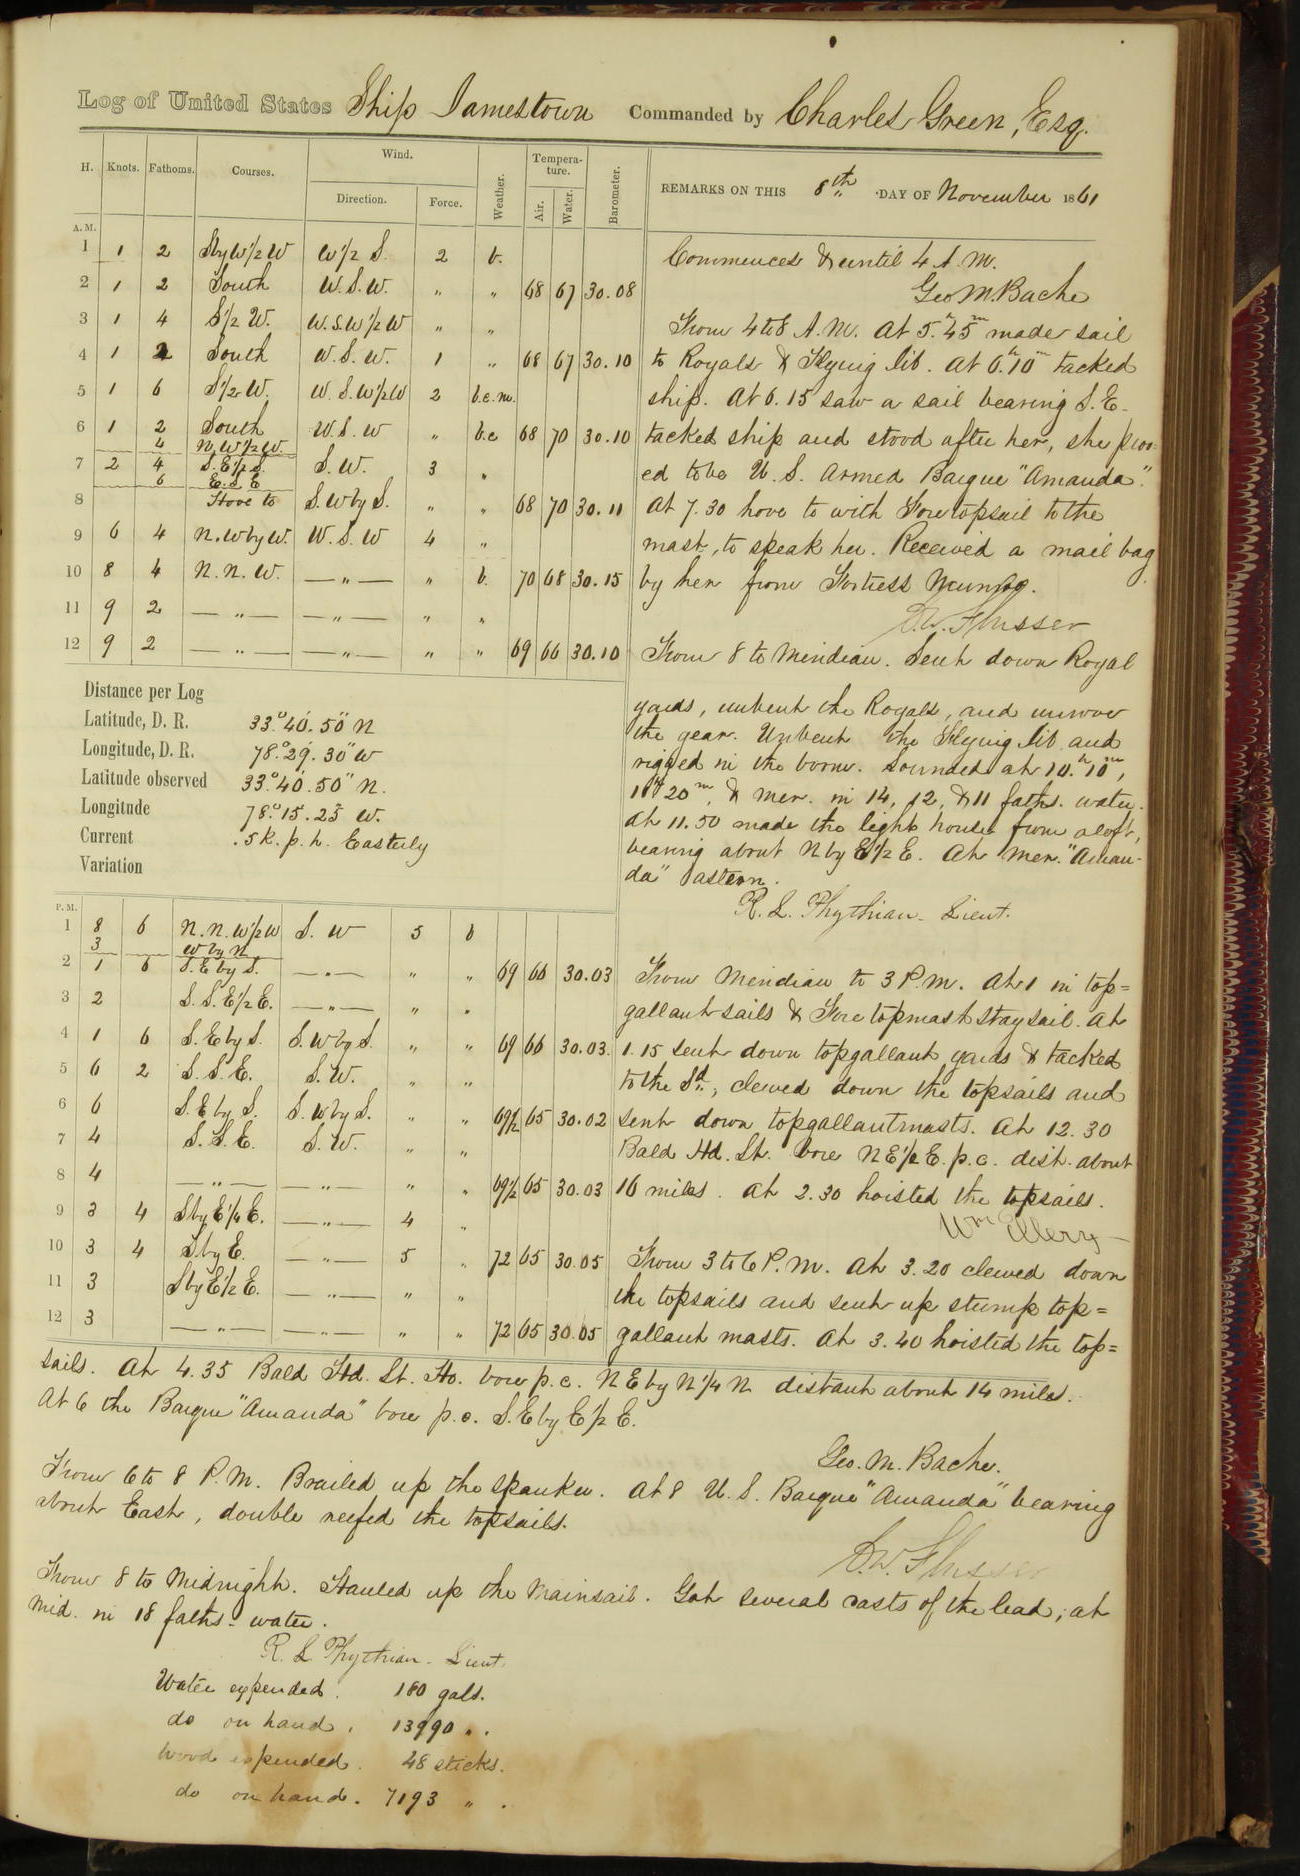 Log of United States Ship Jamestown Commanded by Charles Green, Esq.
H. Knots. Fathoms. Courses. Wind. Direction. Force. Weather. Tempera-ture. Air. Water. Barometer. REMARKS ON THIS 8th DAY OF November 1861
A.M.
1 1 2 SbyW1/2W W1/2 S. 2 b.
2 1 2 South W.S.W. " " 68 67 30.08
3 1 4 S1/2 W. W.S.W1/2W " "
4 1 2 South W.S.W. 1 " 68 67 30.10
5 1 6 S1/2W. W.S.W1/2W 2 b.c.m.
6 1 2 South W.S.W " b.c 68 70 30.10
4 N.W1/2W.
7 2 4 S.E1/2S. S.W. 3 "
6 E.S.E
8 Hove to S.WbyS. " " 68 70 30.11
9 6 4 N.WbyW. W.S.W 4 "
10 8 4 N.N.W. — " — " b. 70 68 30.15
11 9 2 — " — — " — " "
12 9 2 — " — — " — " " 69 66 30.10
Commences & until 4 A.M.
Geo M. Bache
From 4 to 8 A.M. At 5.h 45m made sail
to Royals & Flying Jib. At 6.h 10m tacked
ship. At 6.15 saw a sail bearing S.E.
tacked ship and stood after her, she prov-
ed to be U.S. Armed Barque "Amanda".
At 7.30 hove to with Foretopsail to the
mast, to speak her. Received a mail bag
by her from Fortress Munroe.
C.W. Flusser
From 8 to Meridian. Sent down Royal
yards, unbent the Royals, and unrove
the gear. Unbent the Flying Jib and
rigged in the boom. Sounded at 10.h 10m,
11h 20m, & mer. in 14, 12, & 11 faths. water.
At 11.50 made the light house from aloft,
bearing about NbyE1/2E. At mer. "Aman-
da" astern.
R. L. Phythian - Lieut.
Distance per Log
Latitude, D. R. 33.° 40'. 50" N
Longitude, D. R. 78.° 29'. 30" W
Latitude observed 33.° 40'. 50" N.
Longitude 78.° 15. 23" W.
Current .5 K. p. h. Easterly
Variation
P.M.
1 8 6 N.N.W1/2W S. W 5 b
3 W by N
2 1 6 S.E by S. — " — " " 69 66 30.03
3 2 S.S.E1/2E. — " — " "
4 1 6 S.E by S. S.W by S. " " 69 66 30.03.
5 6 2 S.S.E. S.W. " "
6 6 S.E by S. S.W by S. " " 69 1/2 65 30.02
7 4 S.S.E. S.W. " "
8 4 — " — — " — " " 69 1/2 65 30.03
9 3 4 SbyE1/4E. — " — 4 "
10 3 4 SbyE. — " — 5 " 72 65 30.05
11 3 SbyE1/2E. — " — " "
12 3 — " — — " — " " 72 65 30.05
From Meridian to 3 P.M. At 1 in top=
gallantsails & Fore topmast staysail. At
1.15 sent down topgallant yards & tacked
to the Sd., clewed down the topsails and
sent down topgallantmasts. At 12.30
Bald Hd. Lt. bore NE1/2E. p.c. dist. about
16 miles. At 2.30 hoisted the topsails.
Wm Ellery
From 3 to 6 P.M. At 3.20 clewed down
the topsails and sent up stump top=
gallant masts. At 3.40 hoisted the top=
sails. At 4.35 Bald Hd. Lt. Ho. bore p.c. NEbyN1/4N distant about 14 miles.
At 6 the Barque "Amanda" bore p.c. S.EbyE1/2E.
Geo. M. Bache.
From 6 to 8 P.M. Brailed up the spanker. At 8 U.S. Barque "Amanda" bearing
about East, double reefed the topsails.
C.W. Flusser
From 8 to Midnight. Hauled up the Mainsail. Got several casts of the lead; at
Mid. in 18 faths. water.
R. L. Phythian - Lieut.
Water expended. 180 gals.
do on hand. 13990 " .
Wood expended. 48 sticks.
do on hand. 7193 " .